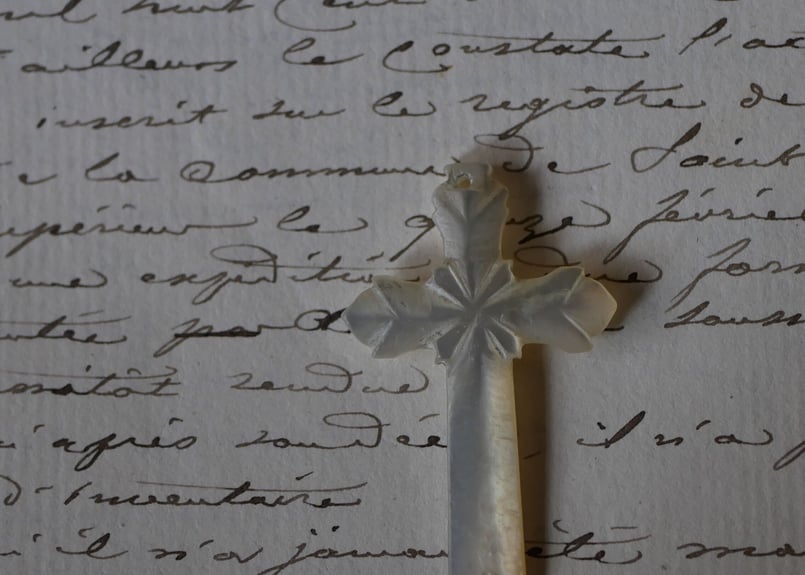 ailleurs le constate l'ac
inscrit sur le registre de
de la commune de Saint
upérieur le quinze févrie
une expédition due form
entée par soum
ussitôt rendue
u'après soudée il n'a p
d'inventaire
u'il n'a jamais été ma